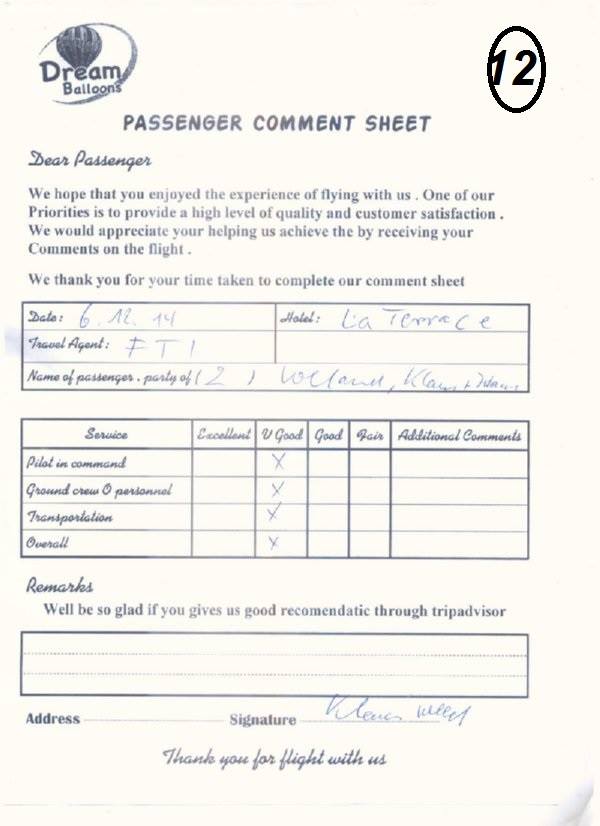 Dream
Balloons
12
PASSENGER COMMENT SHEET
Dear Passenger
We hope that you enjoyed the experience of flying with us . One of our
Priorities is to provide a high level of quality and customer satisfaction .
We would appreciate your helping us achieve the by receiving your
Comments on the flight .
We thank you for your time taken to complete our comment sheet
Date: 6.12.14 Hotel: La Terrace
Travel Agent: FTI
Name of passenger . party of ( 2 ) Klaus +
Service Excellent V Good Good Fair Additional Comments
Pilot in command X
Ground crew O personnel X
Transportation X
Overall X
Remarks
Well be so glad if you gives us good recomendatic through tripadvisor
Address Signature Klaus
Thank you for flight with us